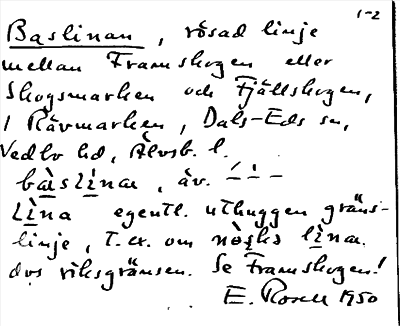 1-2
Baslinan, rösad linje
mellan Framskogen eller
Skogsmarken och Fjällskogen,
i Rävmarken, Dals-Eds sn,
Vedbo hd, Älvsb. l.
bàslìna, äv.
Lìna egentl. uthuggen gräns-
linje, t.ex. om lìna.
dvs riksgränsen. Se Framskogen!
E. Rosell 1950